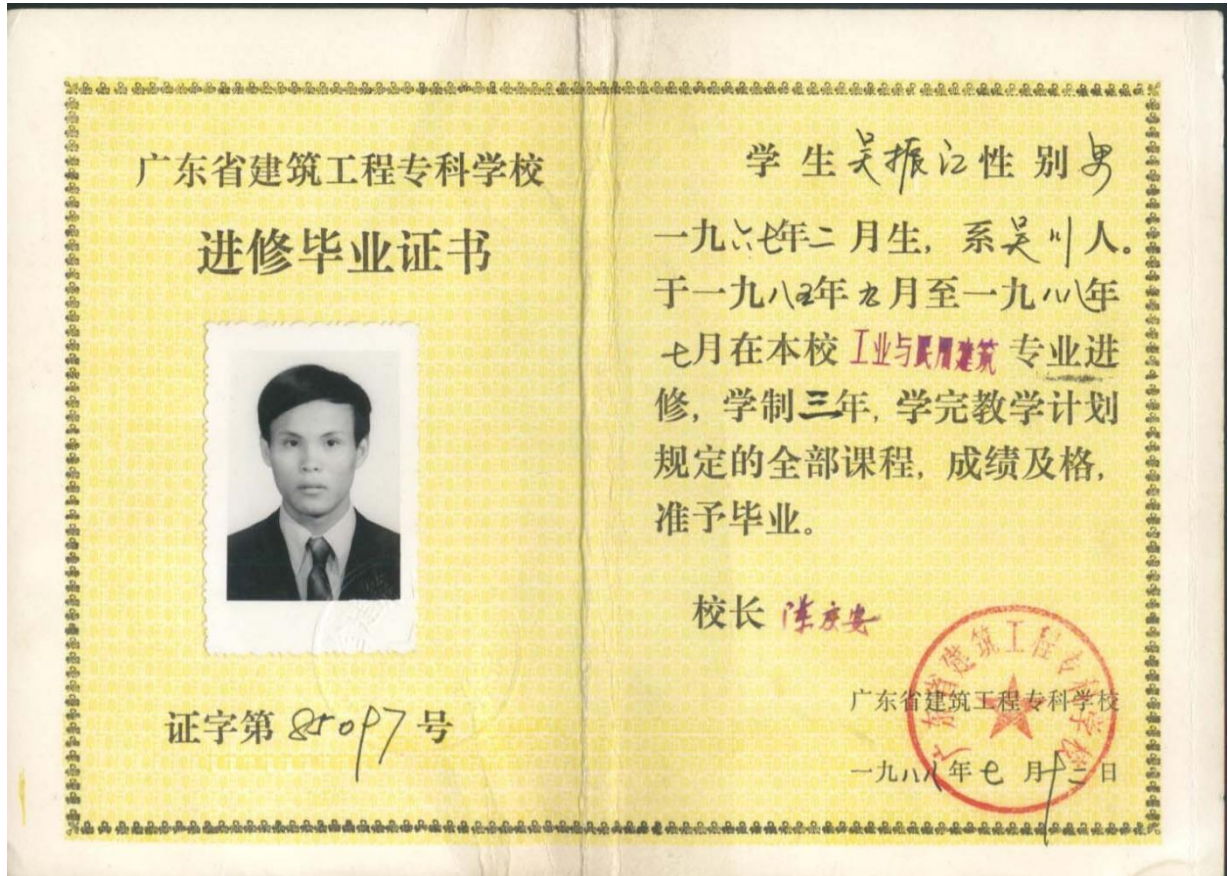 广东省建筑工程专科学校
进修毕业证书
证字第 85097 号
学生吴振江性别男
一九六七年二月生，系吴川人。
于一九八五年九月至一九八八年
七月在本校工业与民用建筑专业进
修，学制三年，学完教学计划
规定的全部课程，成绩及格，
准予毕业。
校长 陈庆安
广东省建筑工程专科学校
广东省建筑工程专科学校
一九八八年七月十二日